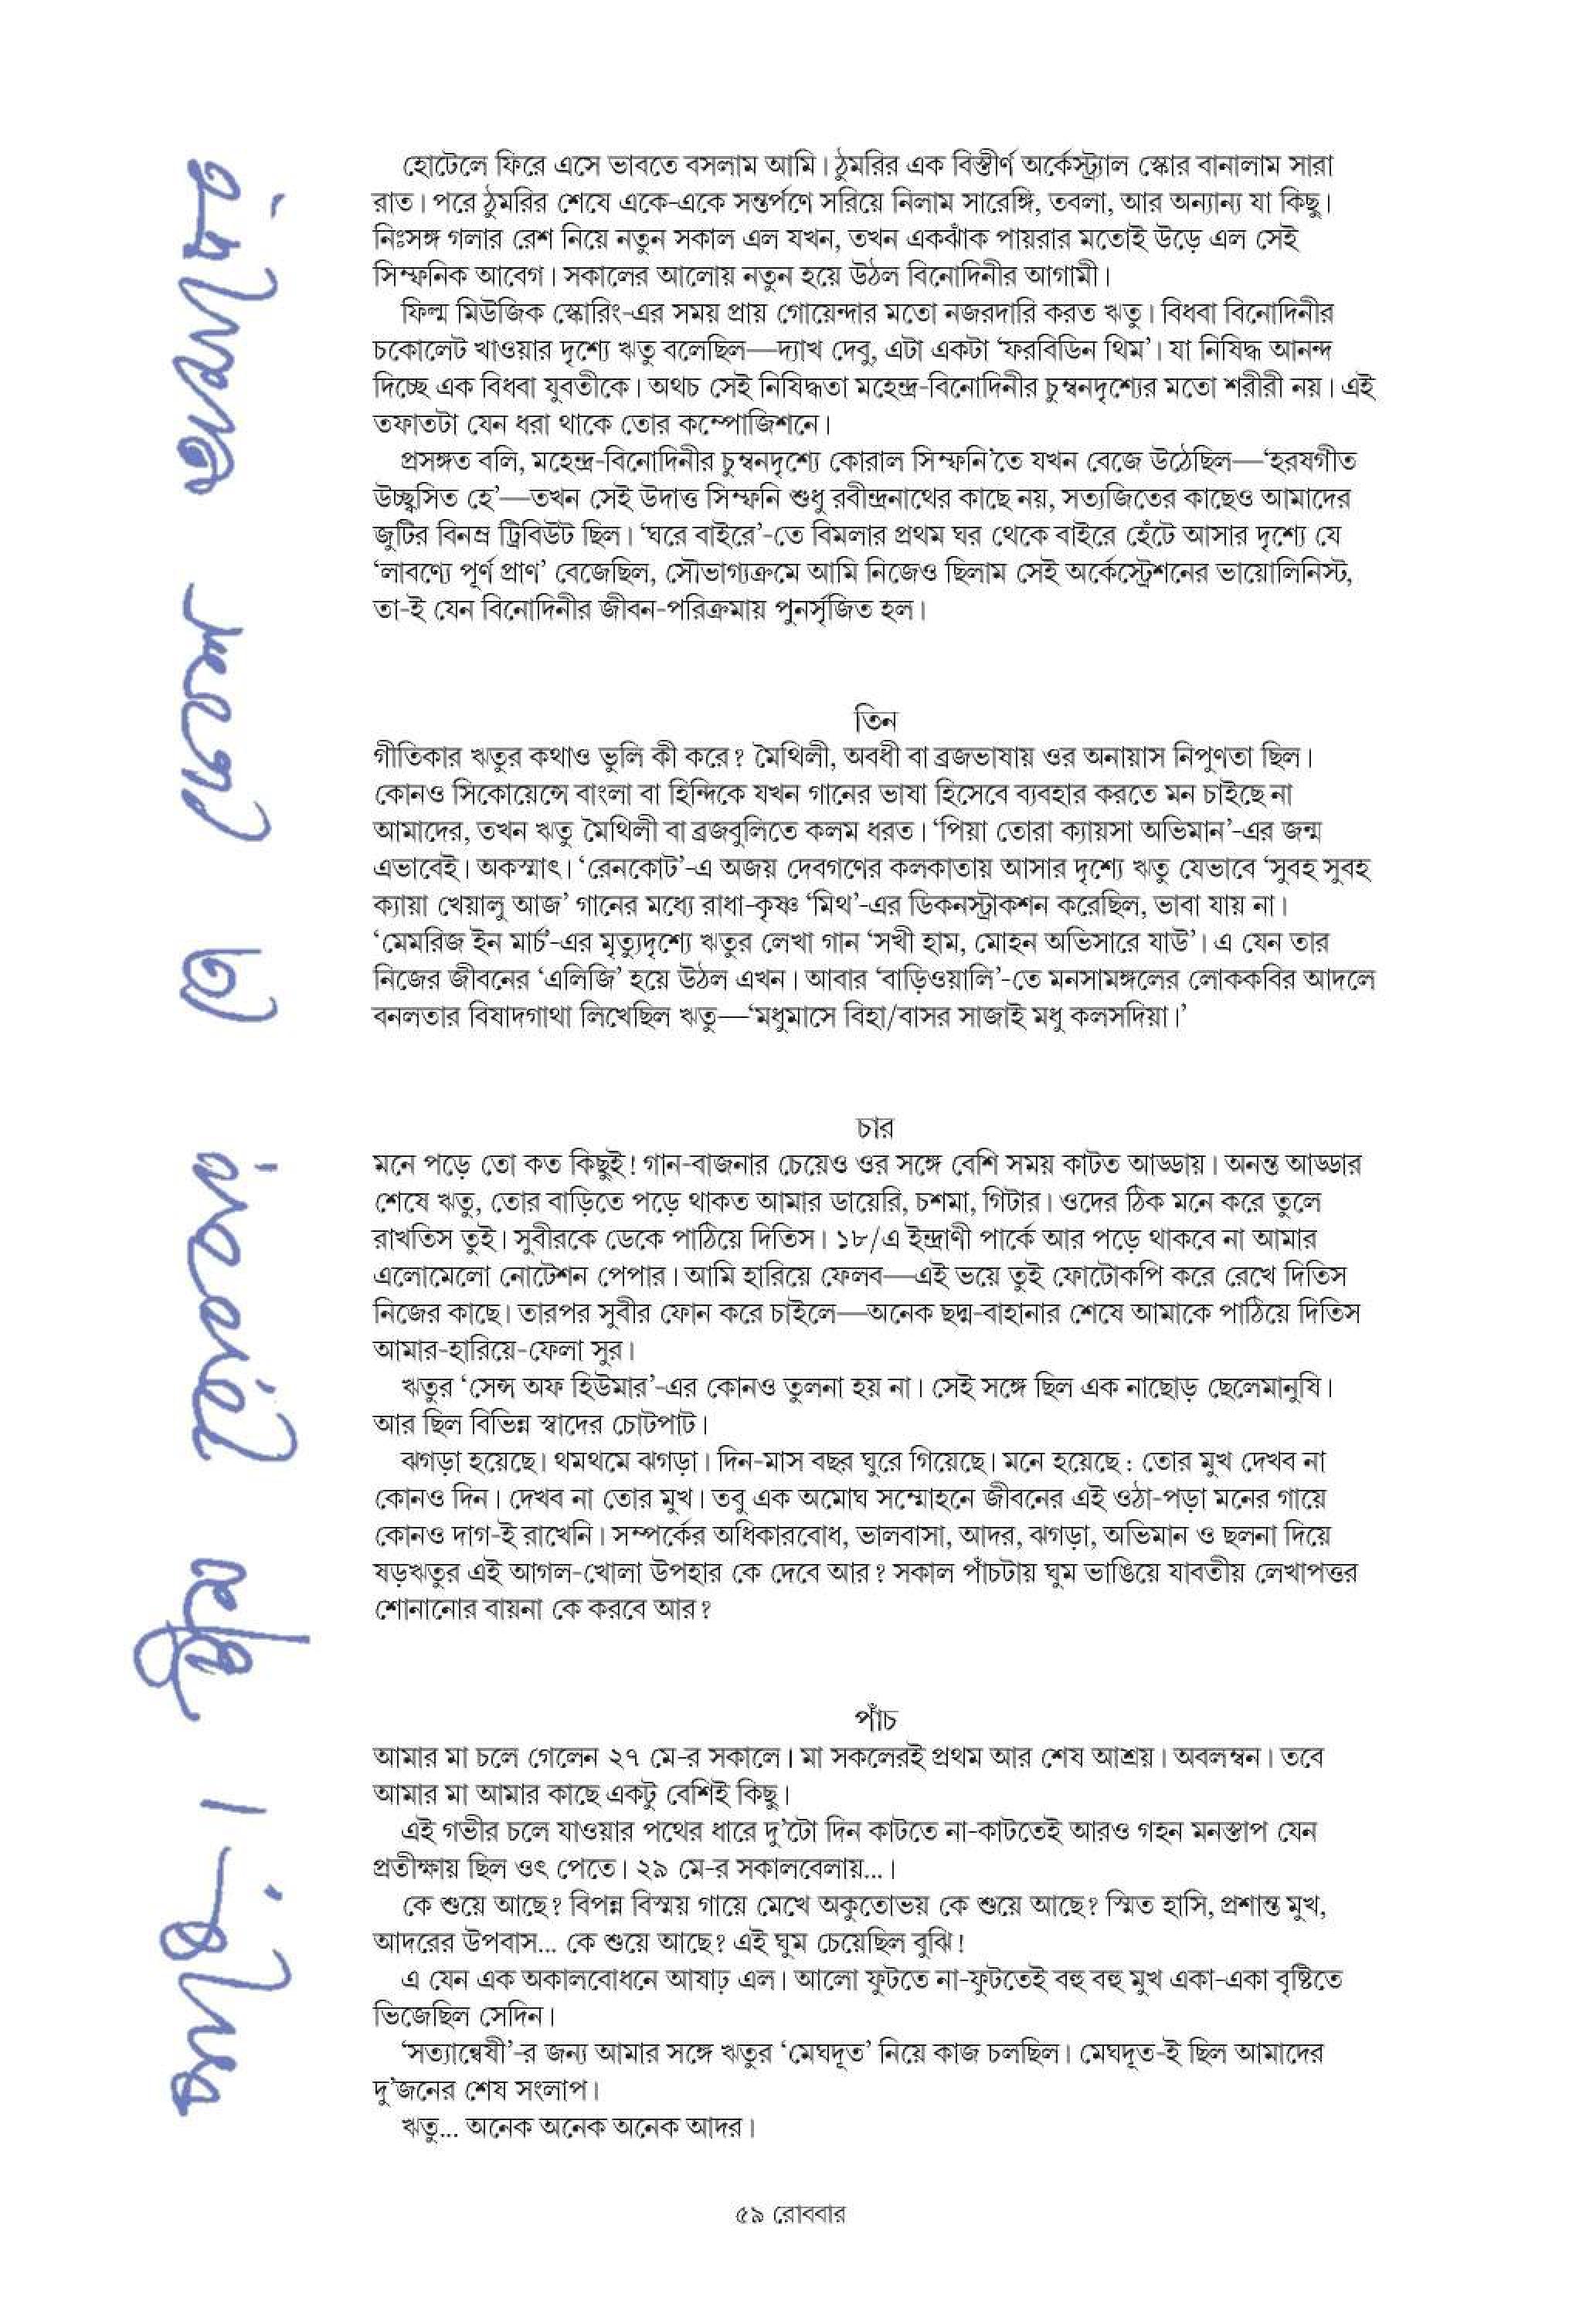 হোটেলে ফিরে এসে ভাবতে বসলাম আমি। ঠুমরির এক বিস্তীর্ণ অর্কেস্ট্র্যাল স্কোর বানালাম সারা
রাত। পরে ঠুমরির শেষে একে-একে সন্তর্পণে সরিয়ে নিলাম সারেঙ্গি, তবলা, আর অন্যান্য যা কিছু।
নিঃসঙ্গ গলার রেশ নিয়ে নতুন সকাল এল যখন, তখন একঝাঁক পায়রার মতোই উড়ে এল সেই
সিম্ফনিক আবেগ। সকালের আলোয় নতুন হয়ে উঠল বিনোদিনীর আগামী।
ফিল্ম মিউজিক স্কোরিং-এর সময় প্রায় গোয়েন্দার মতো নজরদারি করত ঋতু। বিধবা বিনোদিনীর
চকোলেট খাওয়ার দৃশ্যে ঋতু বলেছিল—দ্যাখ দেবু, এটা একটা ‘ফরবিডিন থিম’। যা নিষিদ্ধ আনন্দ
দিচ্ছে এক বিধবা যুবতীকে। অথচ সেই নিষিদ্ধতা মহেন্দ্র-বিনোদিনীর চুম্বনদৃশ্যের মতো শরীরী নয়। এই
তফাতটা যেন ধরা থাকে তোর কম্পোজিশনে।
প্রসঙ্গত বলি, মহেন্দ্র-বিনোদিনীর চুম্বনদৃশ্যে কোরাল সিম্ফনি’তে যখন বেজে উঠেছিল—‘হরষগীত
উচ্ছ্বসিত হে’—তখন সেই উদাত্ত সিম্ফনি শুধু রবীন্দ্রনাথের কাছে নয়, সত্যজিতের কাছেও আমাদের
জুটির বিনম্র ট্রিবিউট ছিল। ‘ঘরে বাইরে’-তে বিমলার প্রথম ঘর থেকে বাইরে হেঁটে আসার দৃশ্যে যে
‘লাবণ্যে পূর্ণ প্রাণ’ বেজেছিল, সৌভাগ্যক্রমে আমি নিজেও ছিলাম সেই অর্কেস্ট্রেশনের ভায়োলিনিস্ট,
তা-ই যেন বিনোদিনীর জীবন-পরিক্রমায় পুনর্সৃজিত হল।
তিন
গীতিকার ঋতুর কথাও ভুলি কী করে? মৈথিলী, অবধী বা ব্রজভাষায় ওর অনায়াস নিপুণতা ছিল।
কোনও সিকোয়েন্সে বাংলা বা হিন্দিকে যখন গানের ভাষা হিসেবে ব্যবহার করতে মন চাইছে না
আমাদের, তখন ঋতু মৈথিলী বা ব্রজবুলিতে কলম ধরত। ‘পিয়া তোরা ক্যায়সা অভিমান’-এর জন্ম
এভাবেই। অকস্মাৎ। ‘রেনকোট’-এ অজয় দেবগণের কলকাতায় আসার দৃশ্যে ঋতু যেভাবে ‘সুবহ সুবহ
ক্যায়া খেয়ালু আজ’ গানের মধ্যে রাধা-কৃষ্ণ ‘মিথ’-এর ডিকনস্ট্রাকশন করেছিল, ভাবা যায় না।
‘মেমরিজ ইন মার্চ’-এর মৃত্যুদৃশ্যে ঋতুর লেখা গান ‘সখী হাম, মোহন অভিসারে যাউ’। এ যেন তার
নিজের জীবনের ‘এলিজি’ হয়ে উঠল এখন। আবার ‘বাড়িওয়ালি’-তে মনসামঙ্গলের লোককবির আদলে
বনলতার বিষাদগাথা লিখেছিল ঋতু—‘মধুমাসে বিহা/বাসর সাজাই মধু কলসদিয়া।’
চার
মনে পড়ে তো কত কিছুই! গান-বাজনার চেয়েও ওর সঙ্গে বেশি সময় কাটত আড্ডায়। অনন্ত আড্ডার
শেষে ঋতু, তোর বাড়িতে পড়ে থাকত আমার ডায়েরি, চশমা, গিটার। ওদের ঠিক মনে করে তুলে
রাখতিস তুই। সুবীরকে ডেকে পাঠিয়ে দিতিস। ১৮/এ ইন্দ্রাণী পার্কে আর পড়ে থাকবে না আমার
এলোমেলো নোটেশন পেপার। আমি হারিয়ে ফেলব—এই ভয়ে তুই ফোটোকপি করে রেখে দিতিস
নিজের কাছে। তারপর সুবীর ফোন করে চাইলে—অনেক ছদ্ম-বাহানার শেষে আমাকে পাঠিয়ে দিতিস
আমার-হারিয়ে-ফেলা সুর।
ঋতুর ‘সেন্স অফ হিউমার’-এর কোনও তুলনা হয় না। সেই সঙ্গে ছিল এক নাছোড় ছেলেমানুষি।
আর ছিল বিভিন্ন স্বাদের চোটপাট।
ঝগড়া হয়েছে। থমথমে ঝগড়া। দিন-মাস বছর ঘুরে গিয়েছে। মনে হয়েছে : তোর মুখ দেখব না
কোনও দিন। দেখব না তোর মুখ। তবু এক অমোঘ সম্মোহনে জীবনের এই ওঠা-পড়া মনের গায়ে
কোনও দাগ-ই রাখেনি। সম্পর্কের অধিকারবোধ, ভালবাসা, আদর, ঝগড়া, অভিমান ও ছলনা দিয়ে
ষড়ঋতুর এই আগল-খোলা উপহার কে দেবে আর? সকাল পাঁচটায় ঘুম ভাঙিয়ে যাবতীয় লেখাপত্তর
শোনানোর বায়না কে করবে আর?
পাঁচ
আমার মা চলে গেলেন ২৭ মে-র সকালে। মা সকলেরই প্রথম আর শেষ আশ্রয়। অবলম্বন। তবে
আমার মা আমার কাছে একটু বেশিই কিছু।
এই গভীর চলে যাওয়ার পথের ধারে দু’টো দিন কাটতে না-কাটতেই আরও গহন মনস্তাপ যেন
প্রতীক্ষায় ছিল ওৎ পেতে। ২৯ মে-র সকালবেলায়...।
কে শুয়ে আছে? বিপন্ন বিস্ময় গায়ে মেখে অকুতোভয় কে শুয়ে আছে? স্মিত হাসি, প্রশান্ত মুখ,
আদরের উপবাস... কে শুয়ে আছে? এই ঘুম চেয়েছিল বুঝি!
এ যেন এক অকালবোধনে আষাঢ় এল। আলো ফুটতে না-ফুটতেই বহু বহু মুখ একা-একা বৃষ্টিতে
ভিজেছিল সেদিন।
‘সত্যান্বেষী’-র জন্য আমার সঙ্গে ঋতুর ‘মেঘদূত’ নিয়ে কাজ চলছিল। মেঘদূত-ই ছিল আমাদের
দু’জনের শেষ সংলাপ।
ঋতু... অনেক অনেক অনেক আদর।
৫৯ রোববার